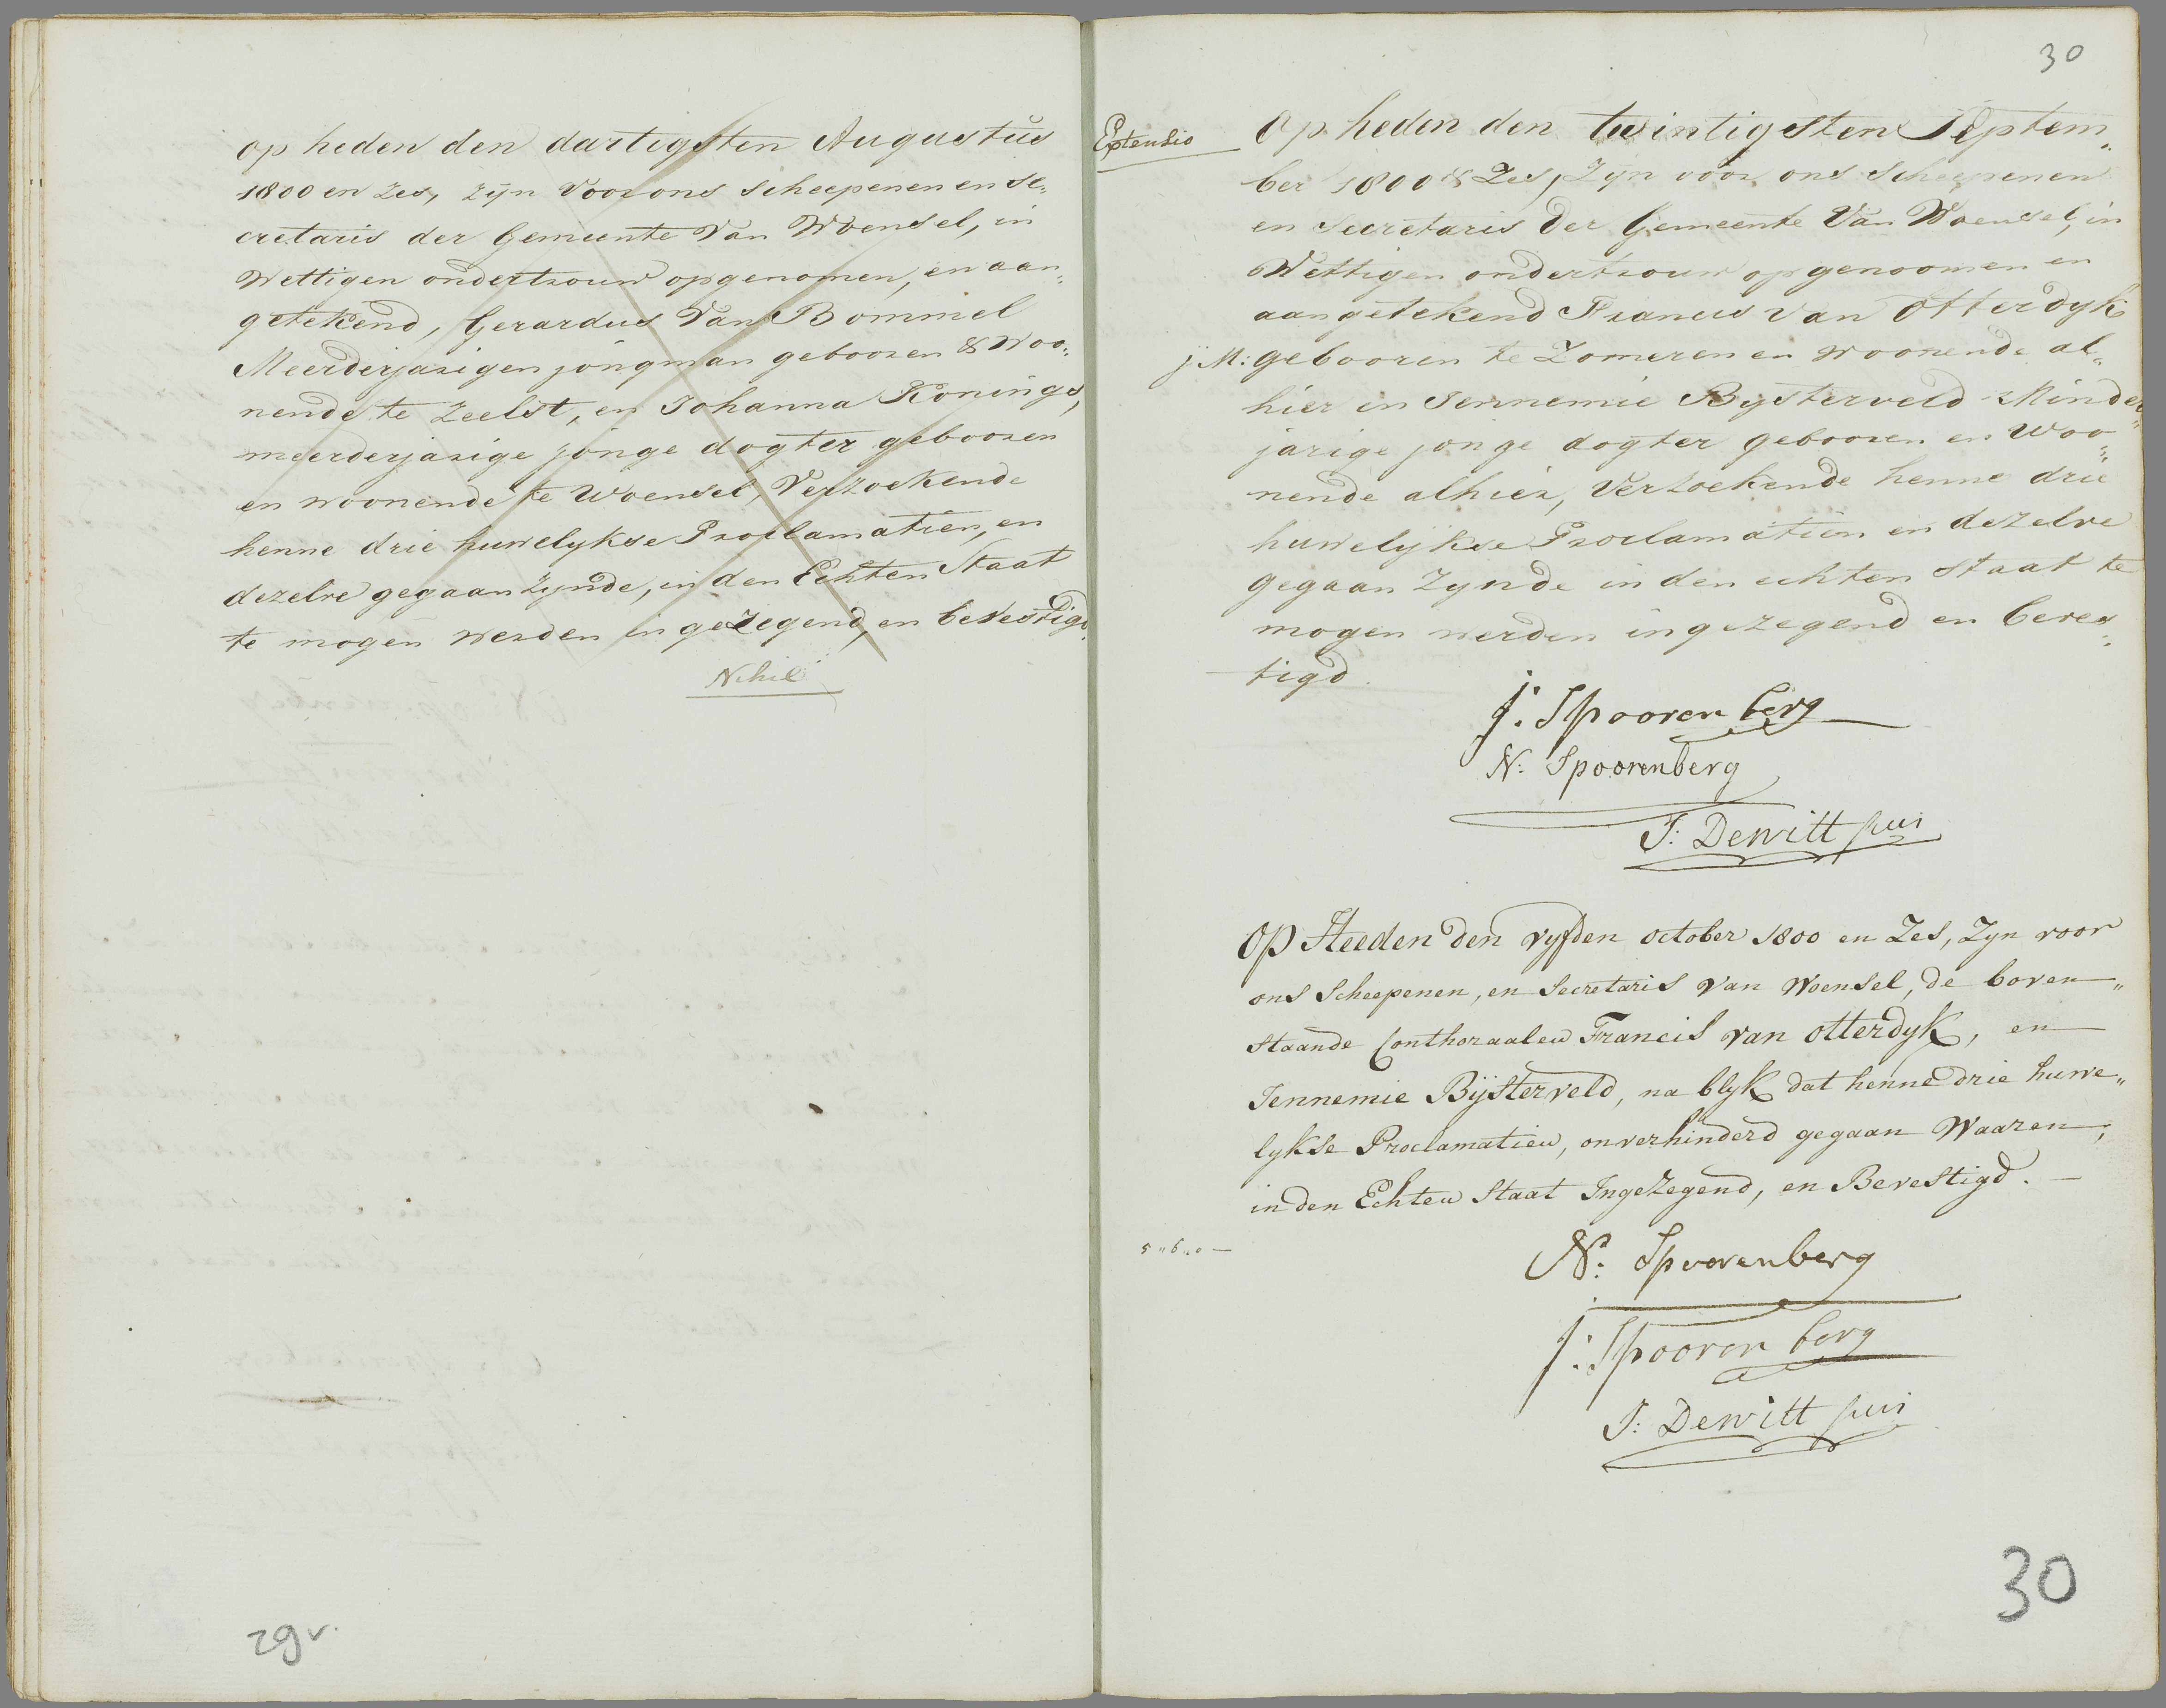 op heden den dartigsten Augustus
1800 en Zes, zijn Voor ons scheepenen en se„
cretaris der Gemeente Van Woensel, in
Wettigen ondertrouw opgenomen, en aan„
getekend, Gerardus Van Bommel
Meerderjarigen jongman geboren & Woo„
nende te Zeelst, en Johanna Konings,
meerderjarige jonge dogter geboren
en woonende te Woensel, Verzoekende
henne drie huwelykse Proclamatien, en
dezelve gegaan zynde, in den Echten Staat
te mogen werden in gezegend, en bevestigd.
Nihil
29v.
30
Op heden den twintigsten Septem„
ber 1800 & Zes, Zyn voor ons Scheepenen
en Secretaris der Gemeente Van Woensel, in
Wettigen ondertrouw opgenoomen en
aangetekend Francis van Otterdyk
j M: gebooren te Zomeren en woonende al„
hier en Jennemie Bysterveld Minder„
jarige jonge dogter geboren en Woo„
nende alhier, Verzoekende henne drie
huwelykse Proclamatien en dezelve
gegaan Zynde in den echten Staat te
mogen werden ingezegend en beves„
tigd.
J: Spoorenberg
N: Spoorenberg
J: Dewitt
Op Heeden den vyfden october 1800 en Zes, Zyn voor
ons Scheepenen, en Secretaris van Woensel, de boven„
staande Conthoraalen Francis van Otterdyk, en
Jennemie Bÿsterveld, na blyk dat henne drie huwe„
lykse Proclamatien, onverhinderd gegaan Waaren,
in den Echten Staat Ingezegend, en Bevestigd. —
5 „ 6 „ 0 —
N: Spoorenberg
J: Spoorenberg
J: Dewitt
30